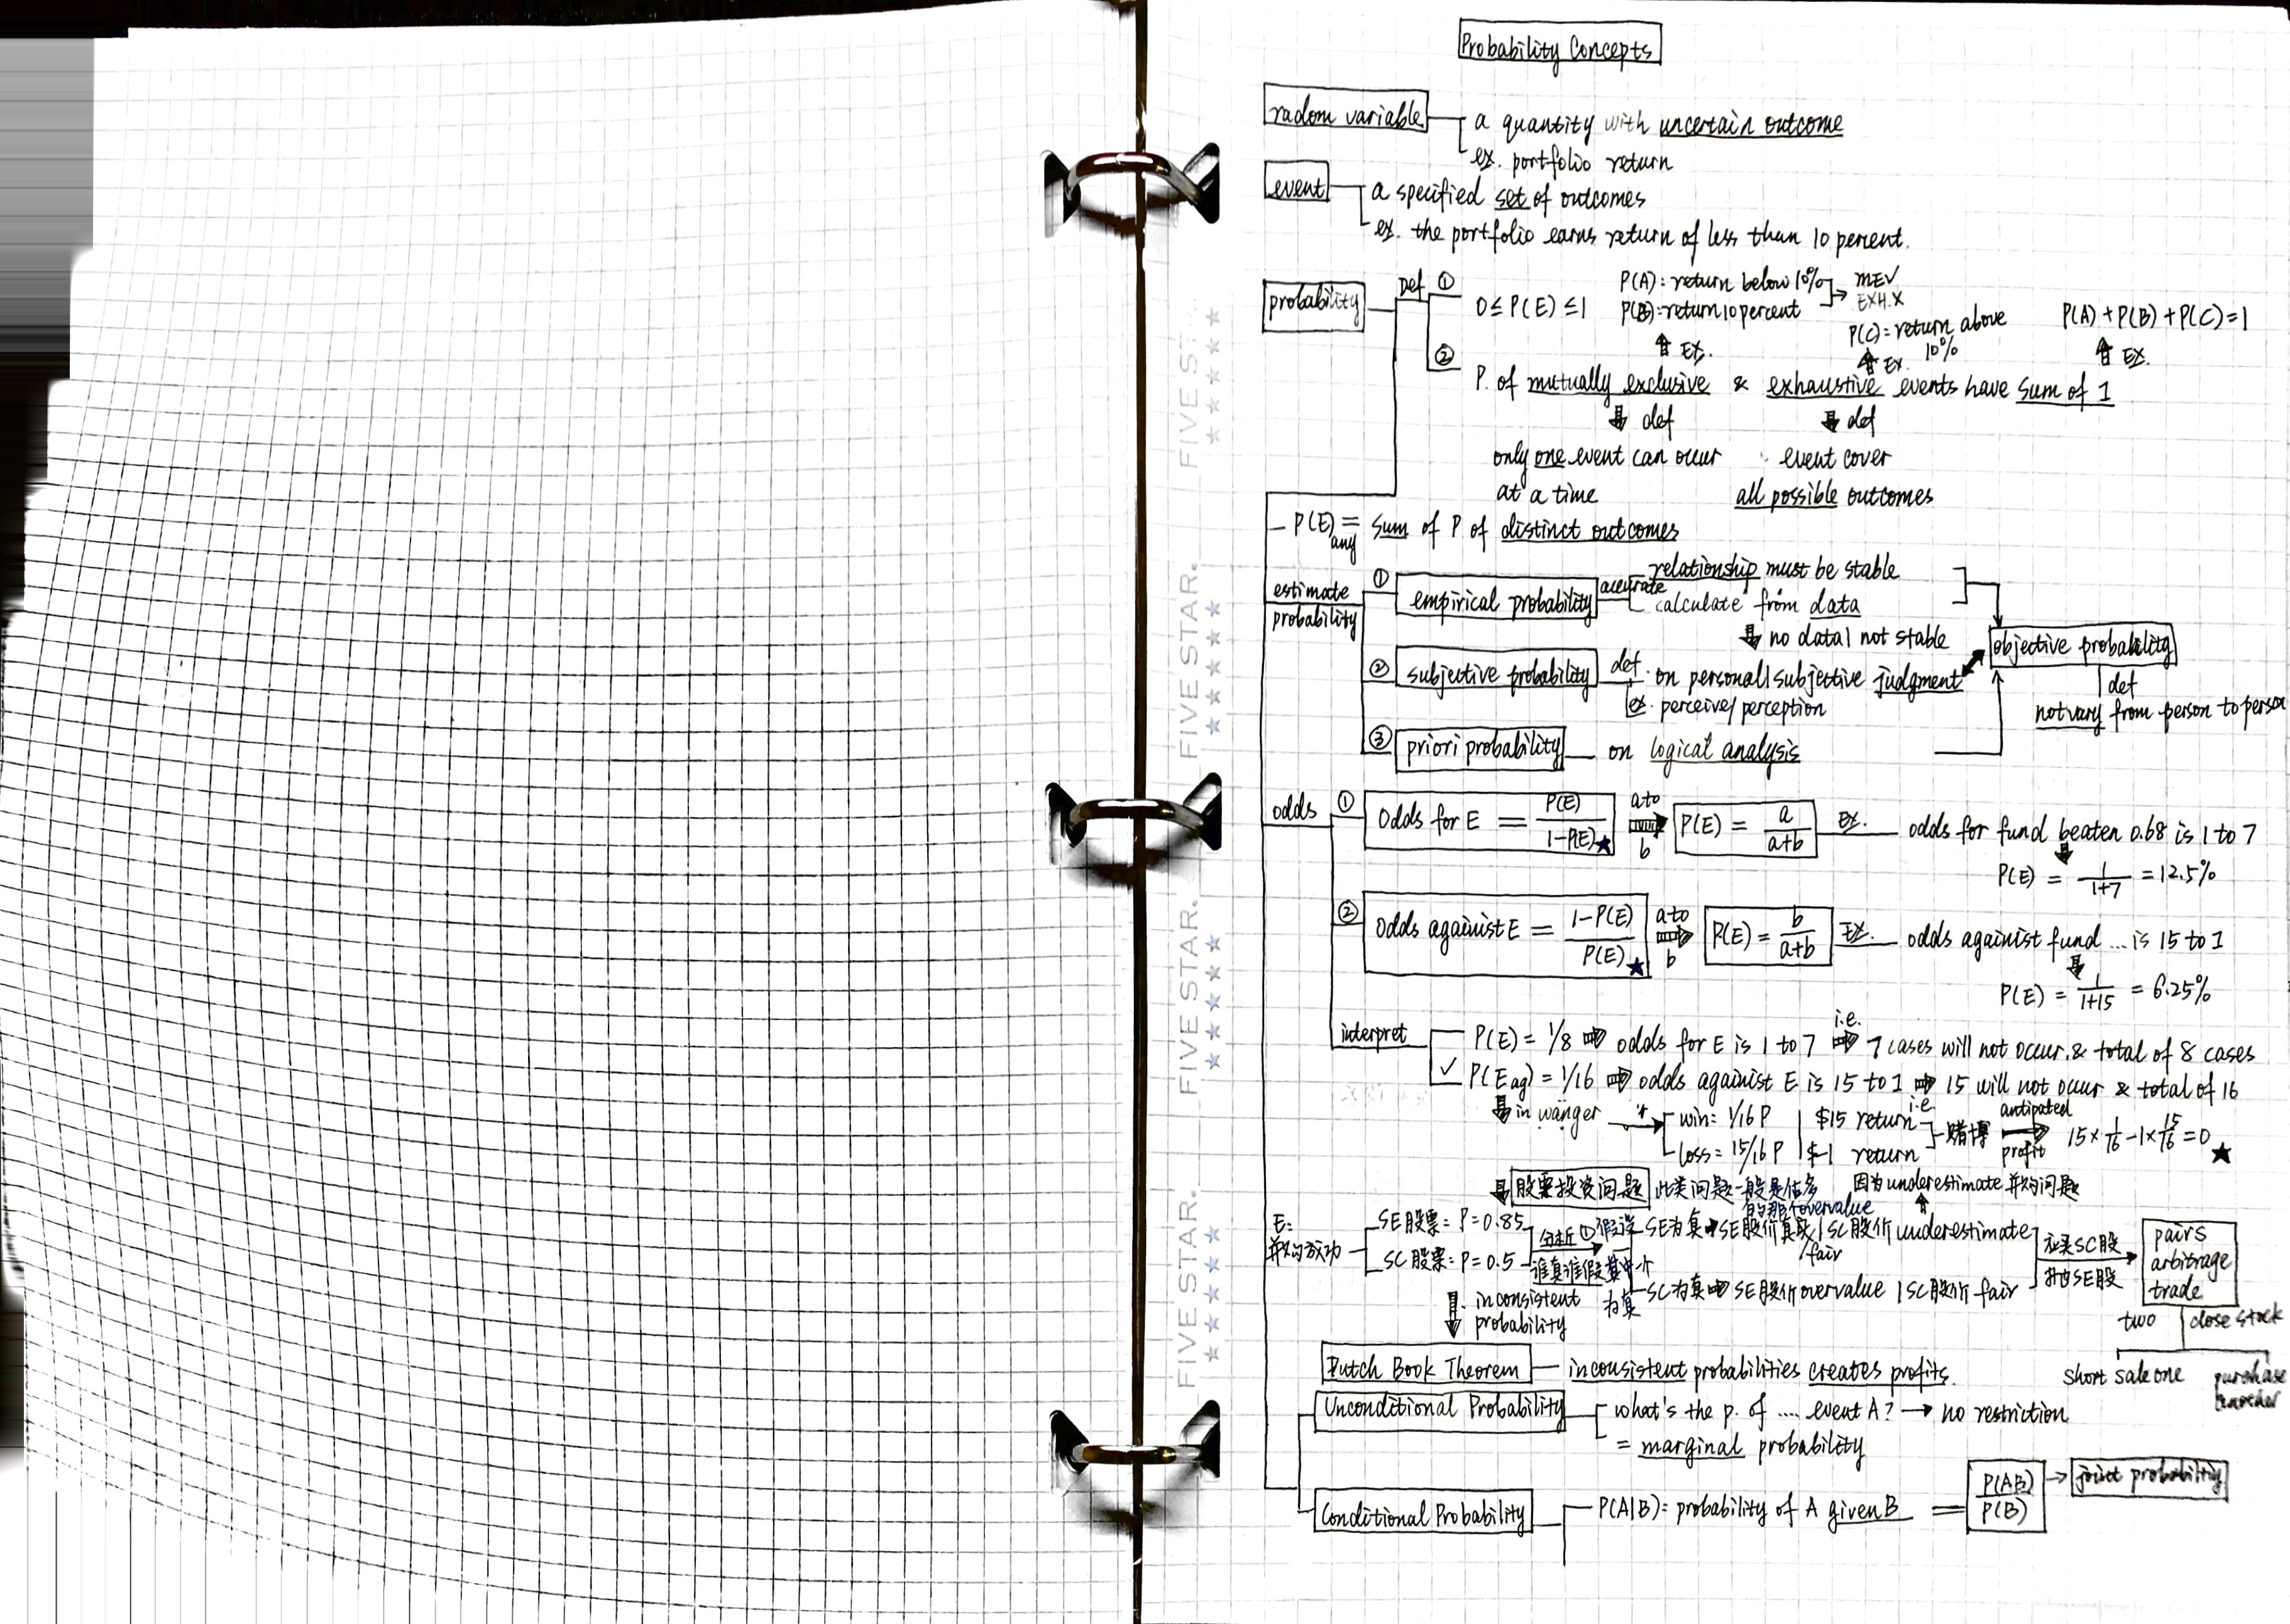 Probability Concepts
radom variable
a quantity with uncertain outcome
ex. portfolio return
event
a specified set of outcomes
ex. the portfolio earns return of less than 10 percent.
probability
Def ①
0 ≤ P(E) ≤ 1
P(A): return below 10%
P(B)=return 10 percent
→ MEV
EXH.X
P(C)=return above 10%
P(A) + P(B) + P(C) = 1
⇧ EX.
⇧ EX.
⇧ EX.
②
P. of mutually exclusive & exhaustive events have sum of 1
⇩ def
⇩ def
only one event can occur
at a time
event cover
all possible outcomes
P(E) = sum of P of distinct outcomes
any
estimate
probability
① empirical probability
accurate
relationship must be stable
calculate from data
⇩ no data | not stable
objective probability
def
not vary from person to person
② subjective probability
def. on personal | subjective judgment
ex. perceive/perception
③ priori probability — on logical analysis
odds
① Odds for E = P(E) / 1-P(E) ★
a to b
P(E) = a / a+b
Ex. odds for fund beaten 0.68 is 1 to 7
P(E) = 1 / 1+7 = 12.5%
② odds againist E = 1-P(E) / P(E) ★
a to b
P(E) = b / a+b
Ex. odds againist fund ... is 15 to 1
P(E) = 1 / 1+15 = 6.25%
interpret
P(E) = 1/8 ⇒ odds for E is 1 to 7 ⇒ i.e. 7 cases will not occur. & total of 8 cases
✓ P(E ag) = 1/16 ⇒ odds againist E is 15 to 1 ⇒ 15 will not occur & total of 16
⇩ in wanger
win: 1/16 P | $15 return
loss = 15/16 P | $-1 return
i.e
赌博
antipated
profit
15 × 1/16 - 1 × 15/16 = 0 ★
⇩ 股票投资问题
此类问题一般是估多
的那个overvalue
因为underestimate 并购问题
E:
并购成功
SE股票: P=0.85
SC股票: P=0.5
分析 ① 假设
谁真谁假
其中一个
为真
SE为真 ⇒ SE股价真取/fair | SC股价 underestimate
SC为真 ⇒ SE股价overvalue | SC股价 fair
SC股
SE股
pairs
arbitrage
trade
two
close stock
short sale one
purchase
another
⇩ inconsistent
probability
Dutch Book Theorem — inconsistent probabilities creates profits.
Unconditional Probability
what's the p. of .... event A? → no restriction
= marginal probability
Conditional Probability
P(A|B): probability of A given B = P(AB) / P(B)
→ joint probability
FIVE STAR.
FIVE STAR.
FIVE STAR.
FIVE STAR.